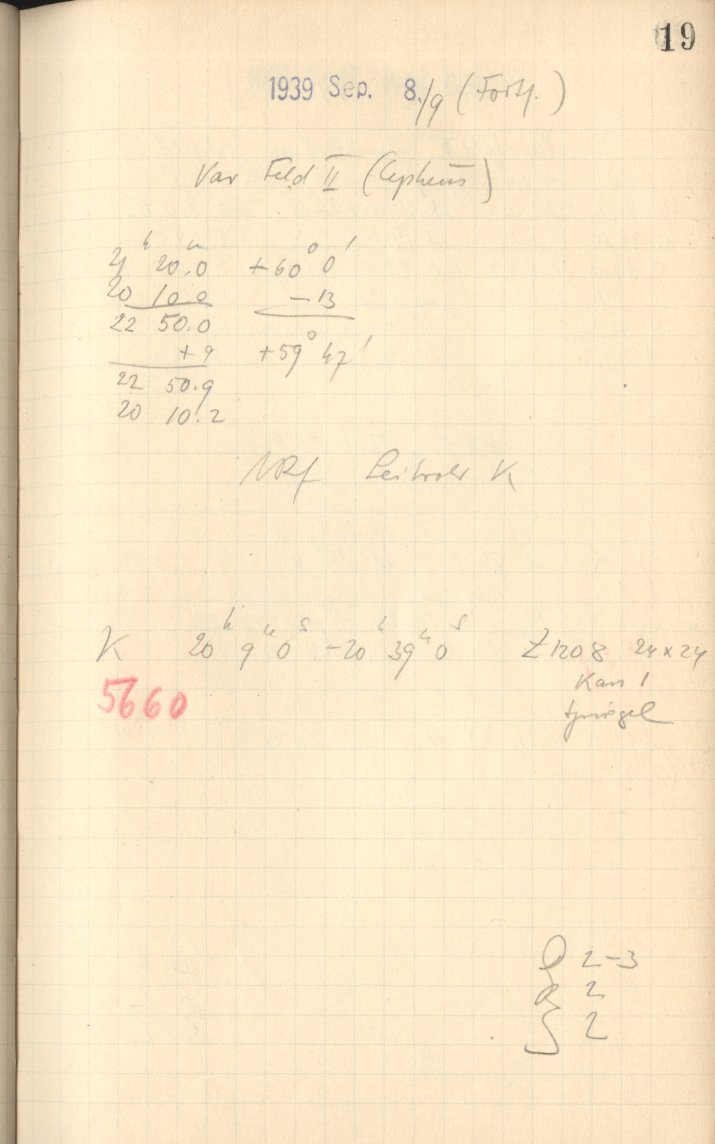 19
1939 Sep. 8./9 (Forts.)
Var Feld II (Cepheus)
21ʰ 20ᵐ.0 +60° 0′
20 10.0 −13
22 50.0
+9 +59° 47′
22 50.9
20 10.2
K
K 20ʰ 9ᵐ 0ˢ − 20ʰ 39ᵐ 0ˢ Z 1208 24×24
5660 Kass 1
Spiegel
2-3
R 2
S 2